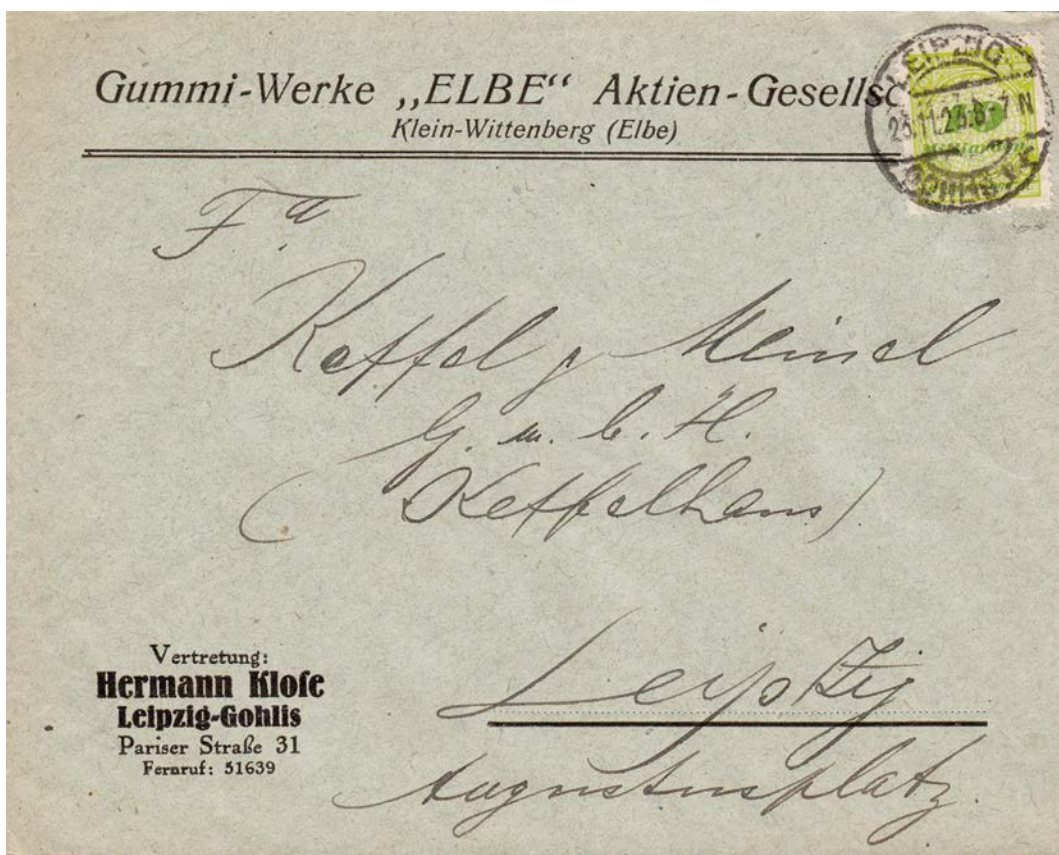 Gummi-Werke „ELBE“ Aktien-Gesellsc
Klein-Wittenberg (Elbe)
LEIPZIG
23.11.23.6-7 N
Milliarden
Fa
G. m. b. H.
Leipzig
Augustusplatz.
Vertretung:
Hermann Kloſe
Leipzig-Gohlis
Pariser Straße 31
Fernruf: 51639